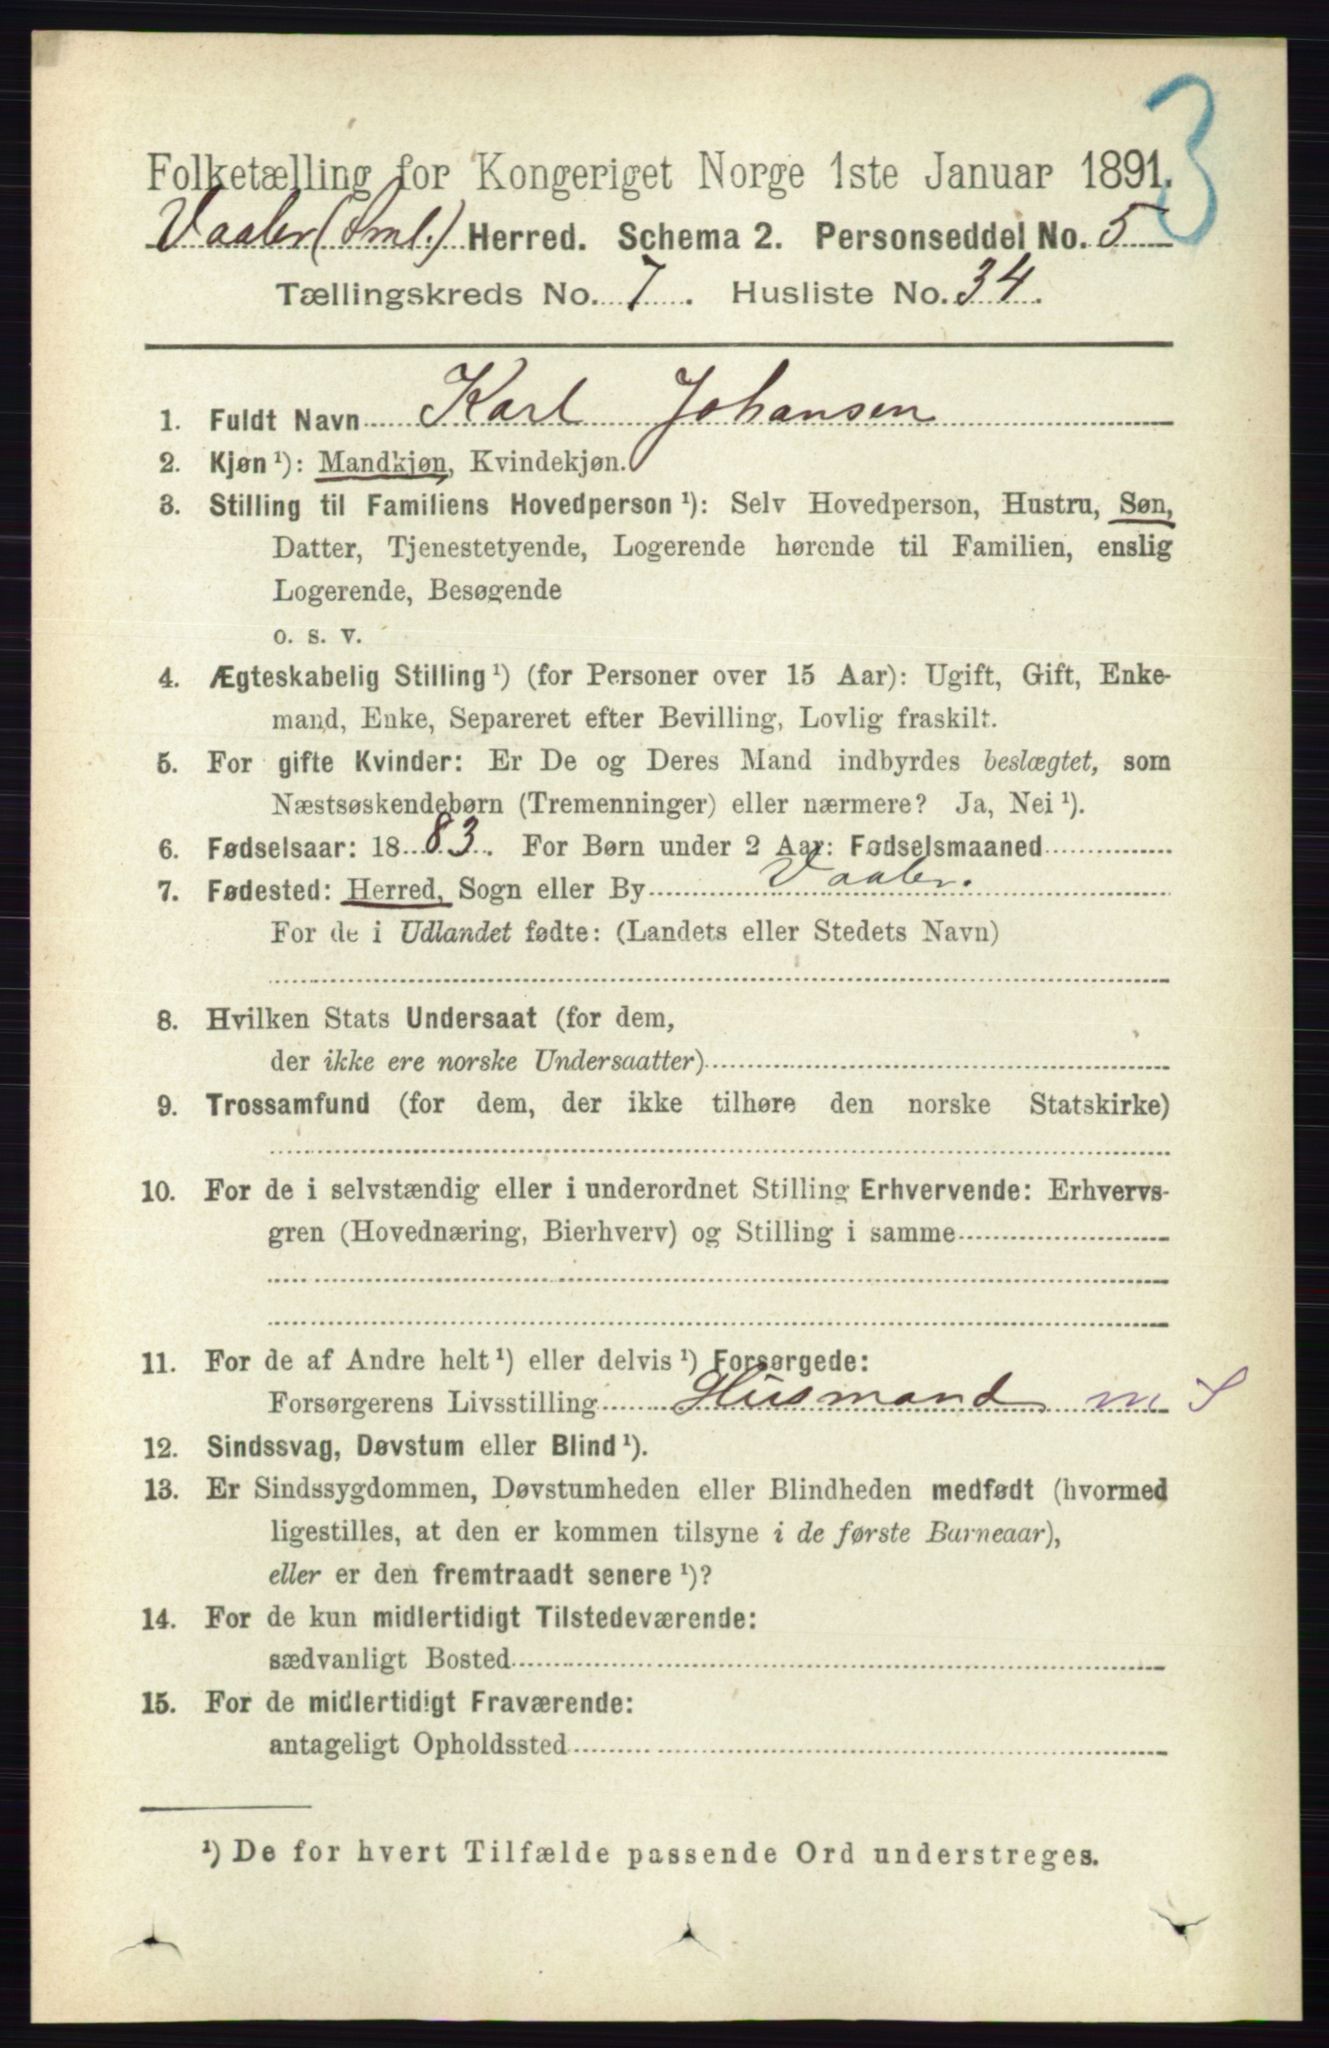 3
Folketælling for Kongeriget Norge 1ste Januar 1891.
Vaaler (Sml.) Herred. Schema 2. Personseddel No. 5
Tællingskreds No. 7. Husliste No. 34.
1. Fuldt Navn Karl Johansen
2. Kjøn ¹): Mandkjøn, Kvindekjøn.
3. Stilling til Familiens Hovedperson ¹): Selv Hovedperson, Hustru, Søn,
Datter, Tjenestetyende, Logerende hørende til Familien, enslig
Logerende, Besøgende
o. s. v.
4. Ægteskabelig Stilling ¹) (for Personer over 15 Aar): Ugift, Gift, Enke-
mand, Enke, Separeret efter Bevilling, Lovlig fraskilt.
5. For gifte Kvinder: Er De og Deres Mand indbyrdes beslægtet, som
Næstsøskendebørn (Tremenninger) eller nærmere? Ja, Nei ¹).
6. Fødselsaar: 1883. For Børn under 2 Aar: Fødselsmaaned
7. Fødested: Herred, Sogn eller By Vaaler.
For de i Udlandet fødte: (Landets eller Stedets Navn)
8. Hvilken Stats Undersaat (for dem,
der ikke ere norske Undersaatter)
9. Trossamfund (for dem, der ikke tilhøre den norske Statskirke)
10. For de i selvstændig eller i underordnet Stilling Erhvervende: Erhvervs-
gren (Hovednæring, Bierhverv) og Stilling i samme
11. For de af Andre helt ¹) eller delvis ¹) Forsørgede:
Forsørgerens Livsstilling Husmand m S
12. Sindssvag, Døvstum eller Blind ¹).
13. Er Sindssygdommen, Døvstumheden eller Blindheden medfødt (hvormed
ligestilles, at den er kommen tilsyne i de første Barneaar),
eller er den fremtraadt senere ¹)?
14. For de kun midlertidigt Tilstedeværende:
sædvanligt Bosted
15. For de midlertidigt Fraværende:
antageligt Opholdssted
¹) De for hvert Tilfælde passende Ord understreges.